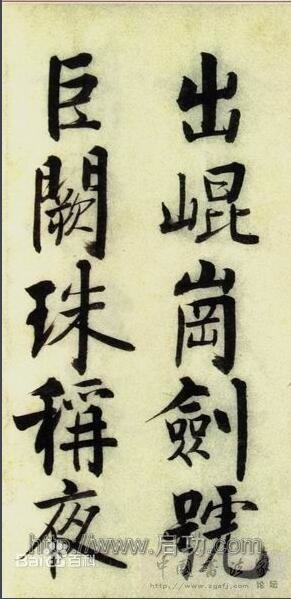 出崐崗劍號
巨闕珠稱夜
http://www.启功.com
Baidu百科
http://www.zgsfj.com 论坛